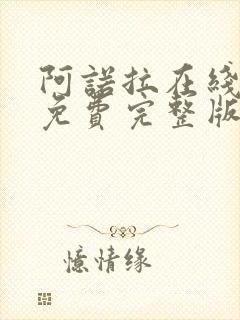 阿諾拉在綫
免費完整版
憶情缘